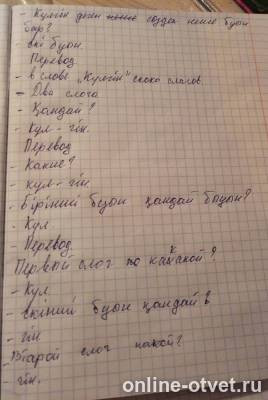 - Күлгін деген сөзде неше буын
бар?
- екі буын
Перевод
- В слове "Күлгін" скоко слагов
- Два слога
- Қандай?
- Күл - гін.
Перевод
- Какие?
- күл - гін
- Бірінші буын қандай буын?
- Күл
- Перевод.
Первый слог какой?
- Күл
- екінші буын қандай
- гін
- Второй слог какой?
- гін.
online-otvet.ru